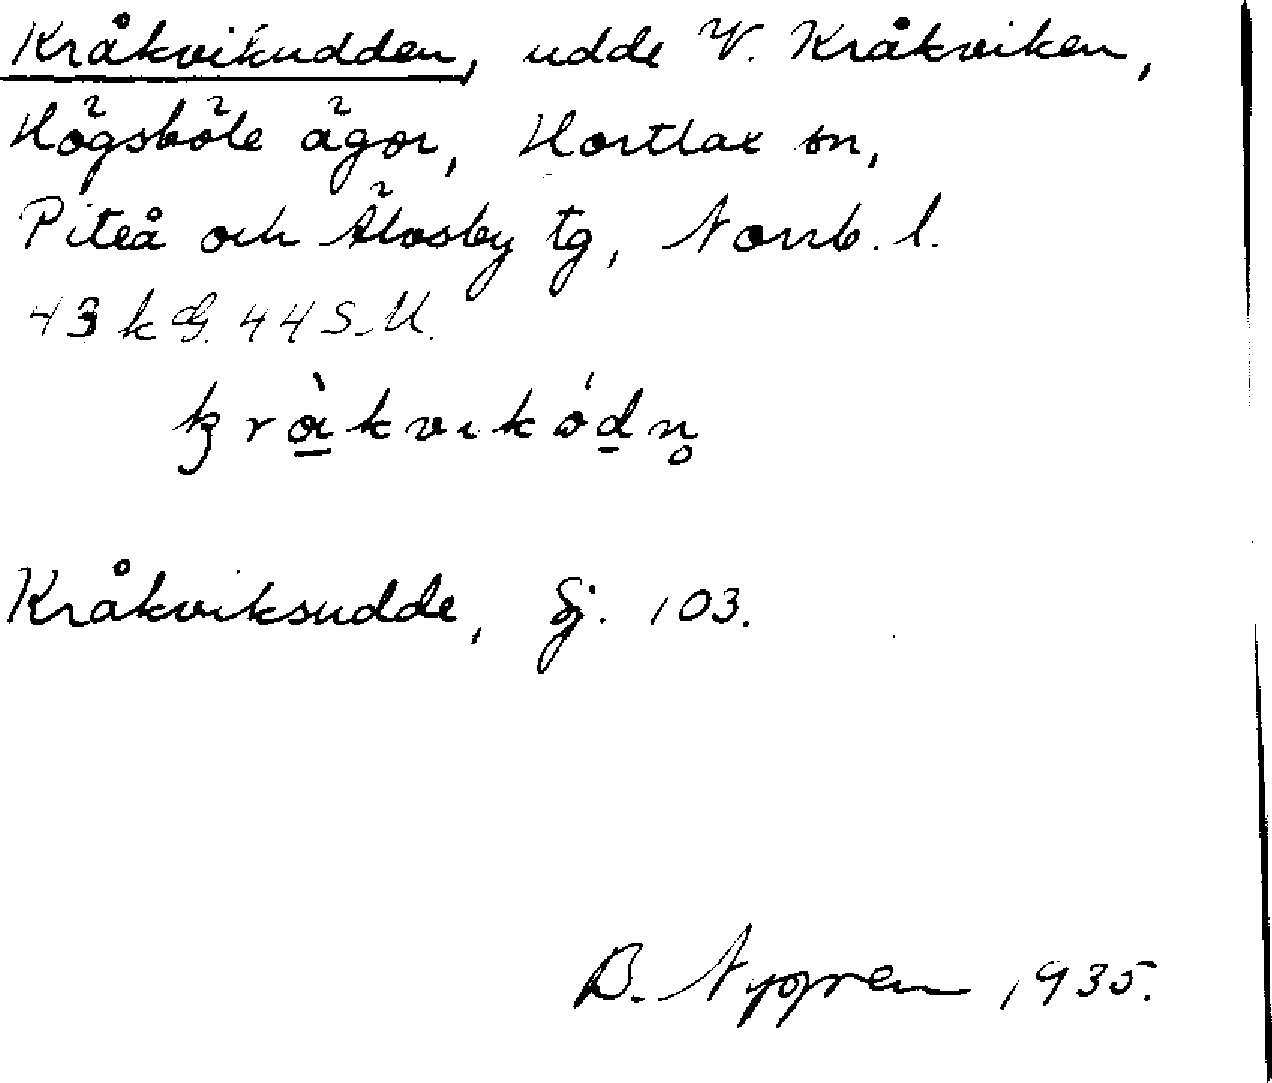 Kråkvikudden, udde V. Kråkviken,
Högsböle ägor, Hortlax sn,
Piteå och Älvsby tg, Norrb. l.
43 k G. 44 S.U.
Kråkviksudde, Sj. 103.
B. Nygren 1935.